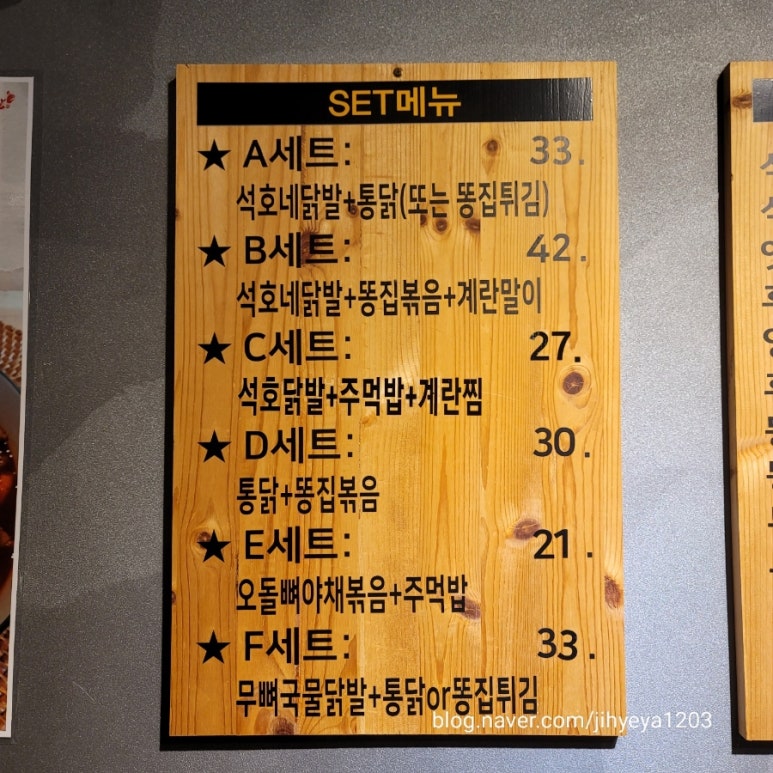 SET메뉴
★ A세트: 33.
석호네닭발+통닭(또는 똥집튀김)
★ B세트: 42.
석호네닭발+똥집볶음+계란말이
★ C세트: 27.
석호닭발+주먹밥+계란찜
★ D세트: 30.
통닭+똥집볶음
★ E세트: 21.
오돌뼈야채볶음+주먹밥
★ F세트: 33.
무뼈국물닭발+통닭or똥집튀김
blog.naver.com/jihyeya1203